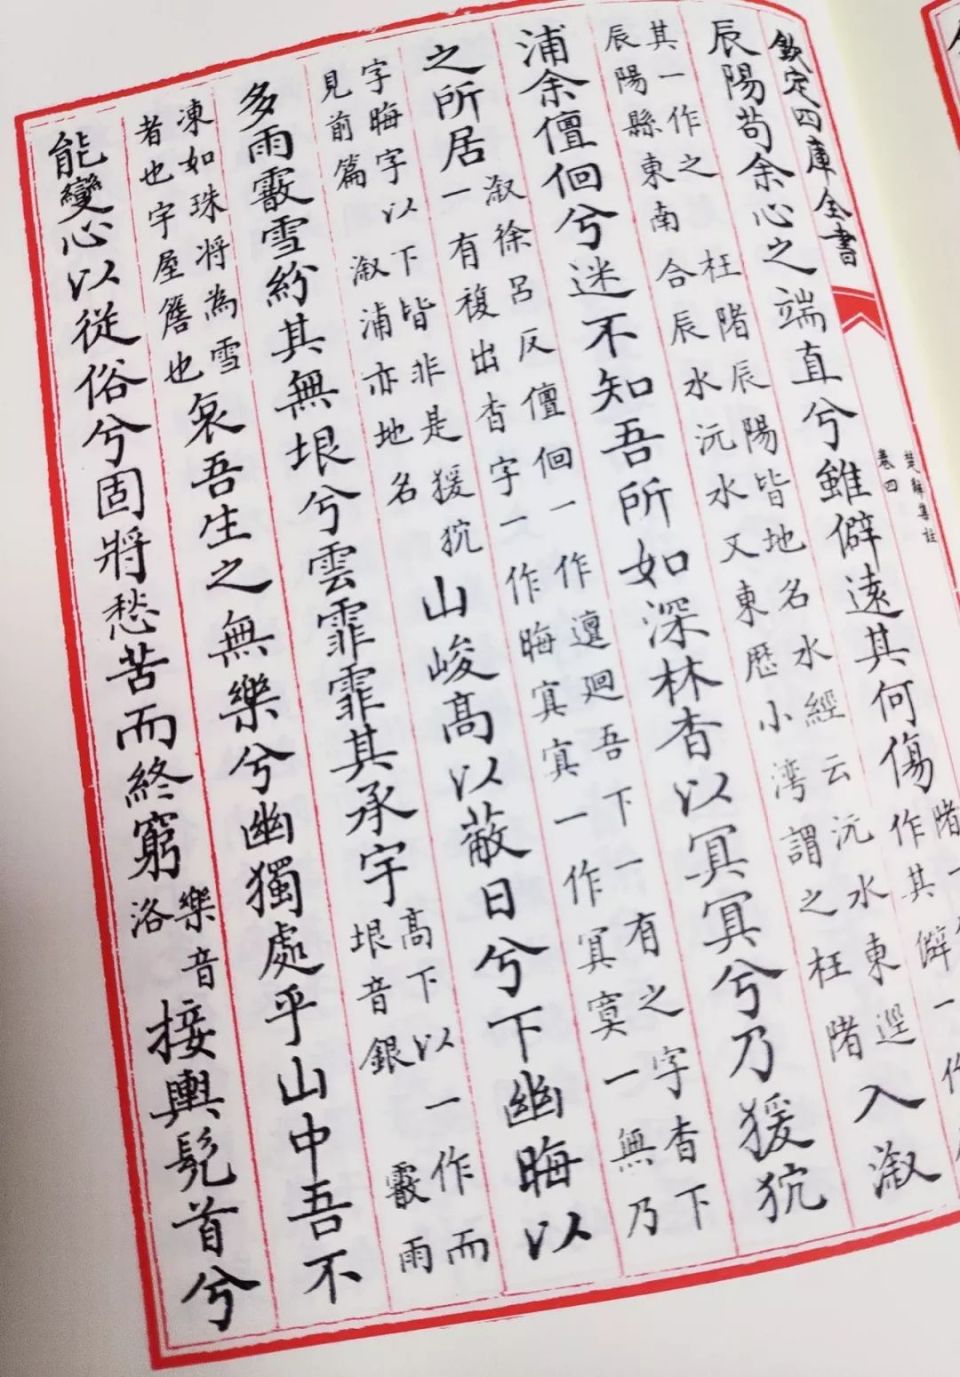 欽定四庫全書
楚辭集註
卷四
辰陽苟余心之端直兮雖僻遠其何傷陼一
作其僻一作
其一作之枉陼辰陽皆地名水經云沅水東逕
辰陽縣東南合辰水沅水又東歷小湾謂之枉陼
入溆
浦余儃佪兮迷不知吾所如深林杳以冥冥兮乃猨狖
之所居
溆徐呂反儃佪一作邅廻吾下一有之字杳下
一有複出杳字一作晦冥冥一作冥寞一無乃
字晦字以下皆非是猨狖
見前篇溆浦亦地名
山峻高以蔽日兮下幽晦以
多雨霰雪紛其無垠兮雲霏霏其承宇
高下以一作而
垠音銀霰雨
凍如珠將為雪
者也宇屋簷也
哀吾生之無樂兮幽獨處乎山中吾不
能變心以從俗兮固將愁苦而終窮
樂音
洛
接輿髡首兮